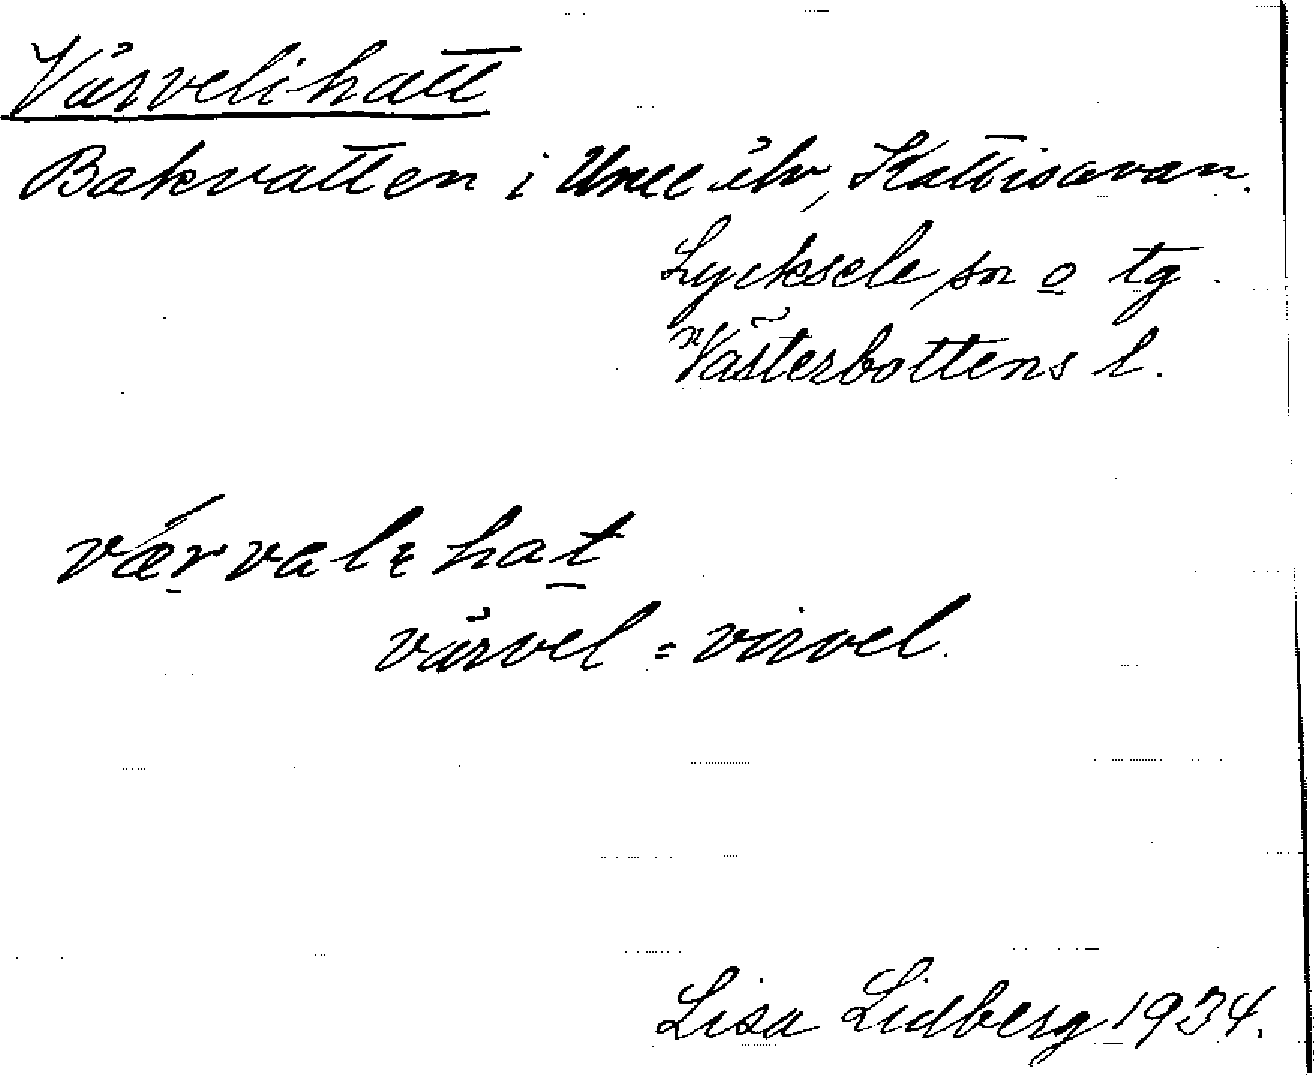 Värvelihatt
Bakvatten i Ume älv, Kattisavan.
Lycksele sn o tg.
Västerbottens l.
værvalɛhat
värvel = virvel.
Lisa Lidberg 1934.